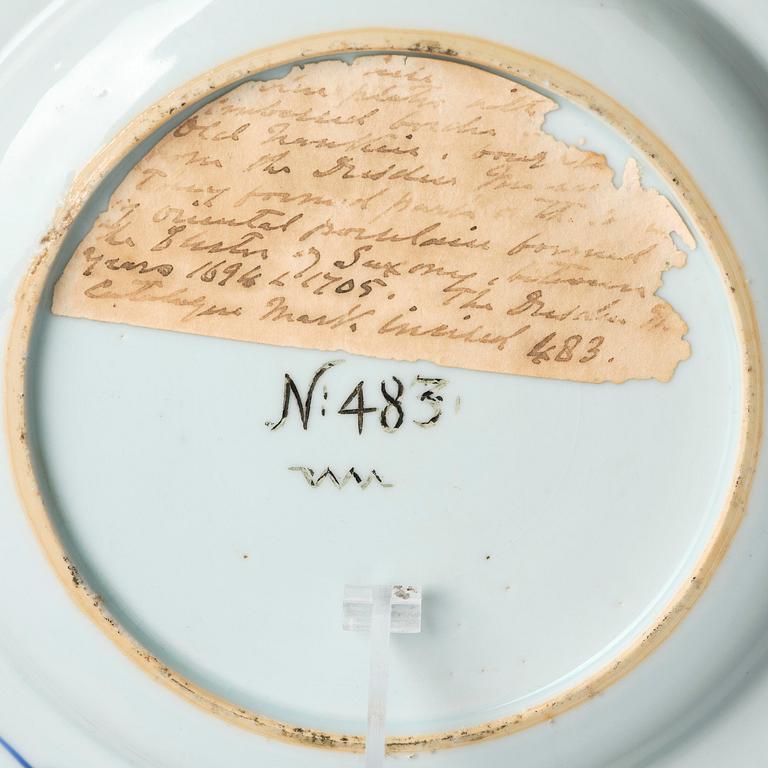 plates with
embossed border
Old Nankin. bought
from the Dresden Museum
They formed part of the
of oriental porcelain formed
the Elector of Saxony, between
years 1694 & 1705. The Dresden
Catalogue Mark incised 483.
N: 483